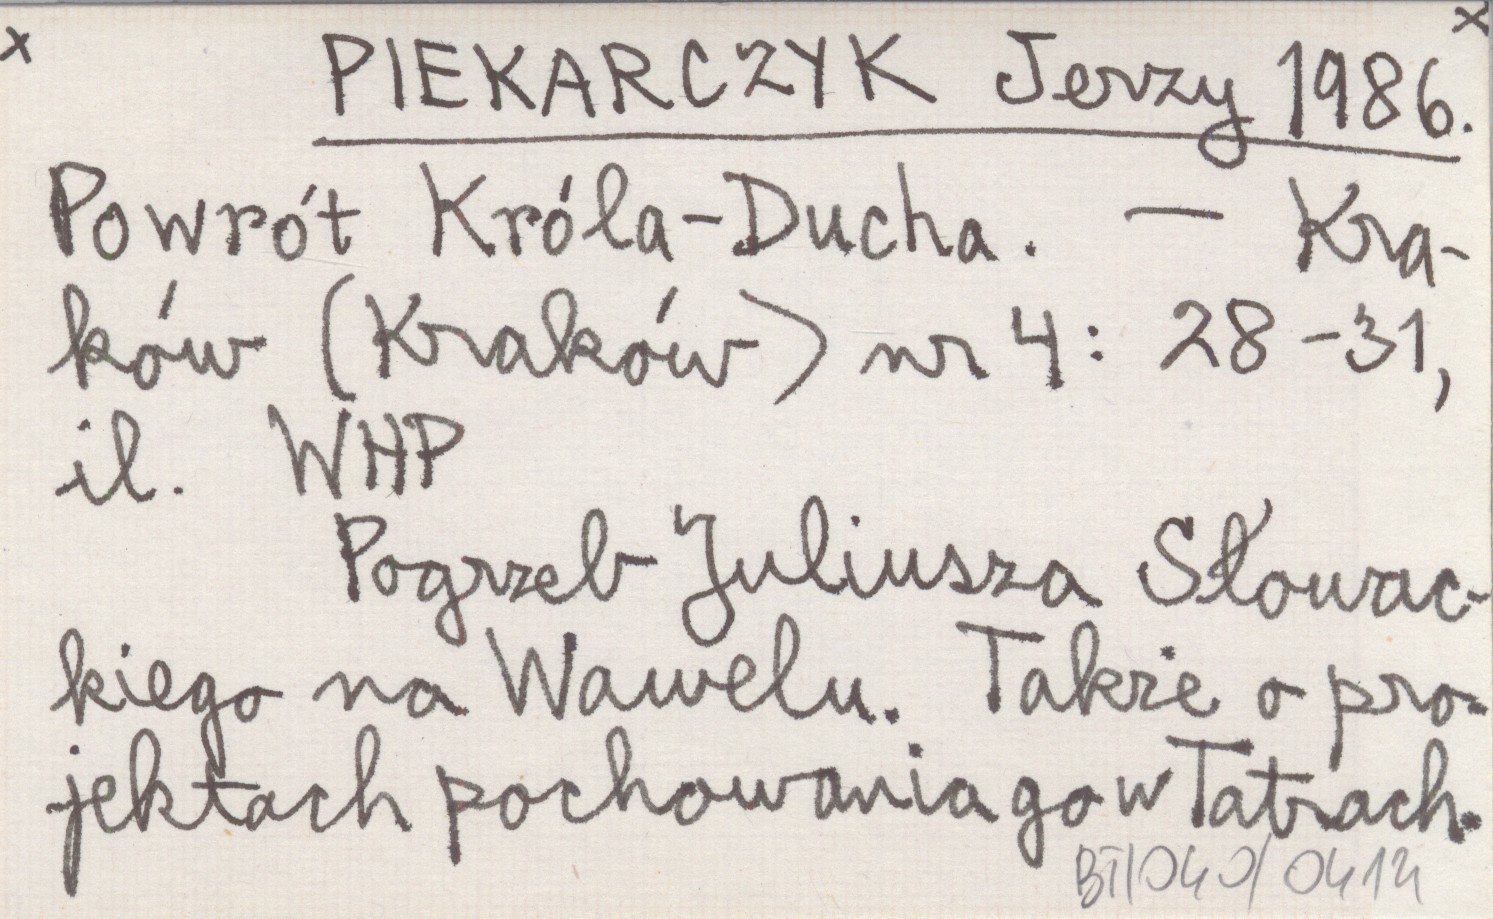 x x
PIEKARCZYK Jerzy 1986.
Powrót Króla-Ducha. — Kra-
ków (Kraków) nr 4: 28-31,
il. WHP
Pogrzeb Juliusza Słowac-
kiego na Wawelu. Także o pro-
jektach pochowania go w Tatrach.
BT/040/0414